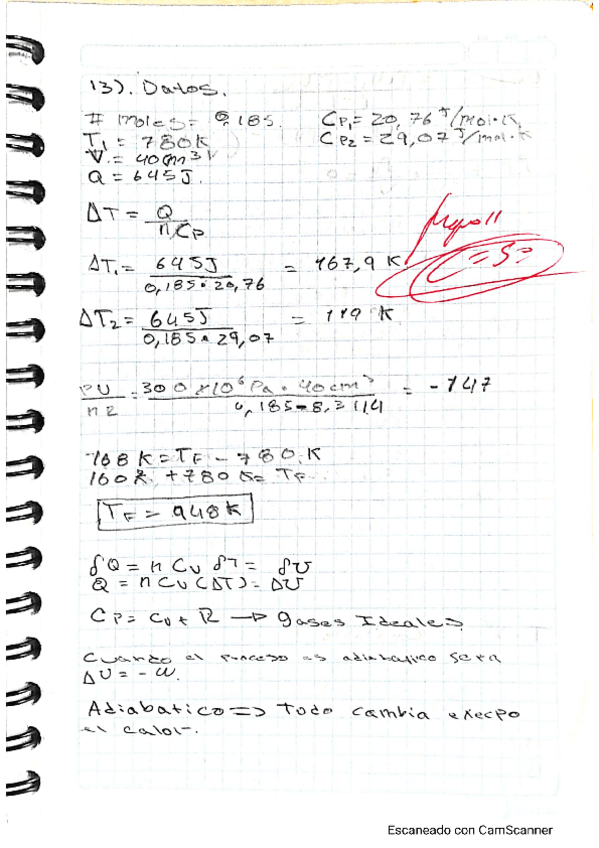 13). Datos.
# moles = 0,185. Cp₁ = 20,76 J/mol·K
T₁ = 780K Cp₂ = 29,07 J/mol·K
V = 40cm³
Q = 645J.
ΔT = Q / n Cp
ΔT₁ = 645J / 0,185·20,76 = 167,9 K
ΔT₂ = 645J / 0,185·29,07 = 119 K
= 300 x10⁶ Pa · 40cm³ / 0,185-8,3114 = -147
168 K = TF - 780.K
160K + 780 K = TF
TF = 948K
δQ = n Cv δT = δU
Q = n Cv (ΔT) = ΔU
Cp = Cv + R → gases Ideales
Cuando el proceso es adiabatico sera
ΔU = - W.
Adiabatico => Todo cambia execpo
el calor.
Escaneado con CamScanner